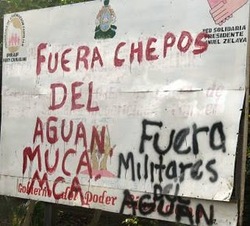 RED SOLIDARIA
PRESIDENTE
MANUEL ZELAYA
FUERA CHEPOS
DEL
AGUAN
MUCA.
MCA
Fuera
Militares
DEL
AGUAN
Poder